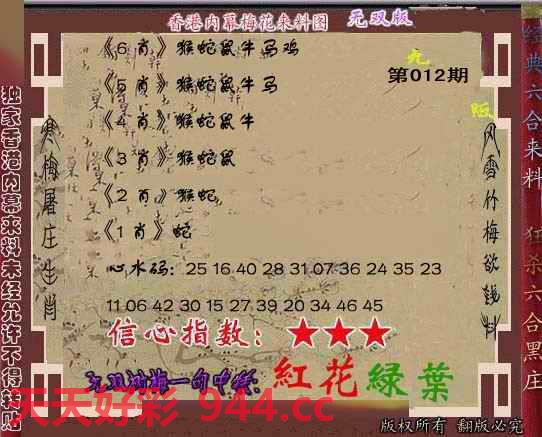 香港内幕梅花来料图 无双版
《6肖》猴蛇鼠牛马鸡
《5肖》猴蛇鼠牛马
《4肖》猴蛇鼠牛
《3肖》猴蛇鼠
《2肖》猴蛇
《1肖》蛇
第012期
心水码：25 16 40 28 31 07 36 24 35 23
11 06 42 30 15 27 39 20 34 46 45
信心指数：★★★
红花绿葉
天天好彩 944.cc
版权所有 翻版必究
独家香港内幕来料未经允许不得转贴
寒梅屠庄生肖
风雪竹梅欲钱料
经典六合来料
狂杀六合黑庄